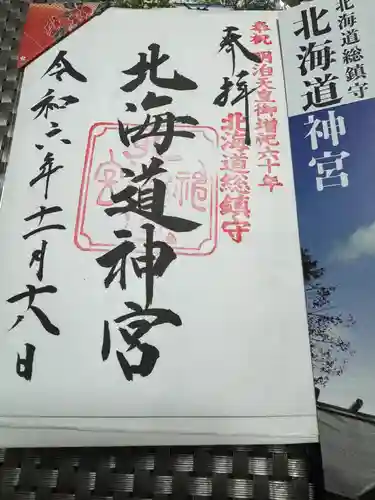 北海道総鎮守
北海道神宮
奉祝 明治天皇御増祀六十年
北海道総鎮守
奉拝
北海道神宮
令和六年十一月十八日